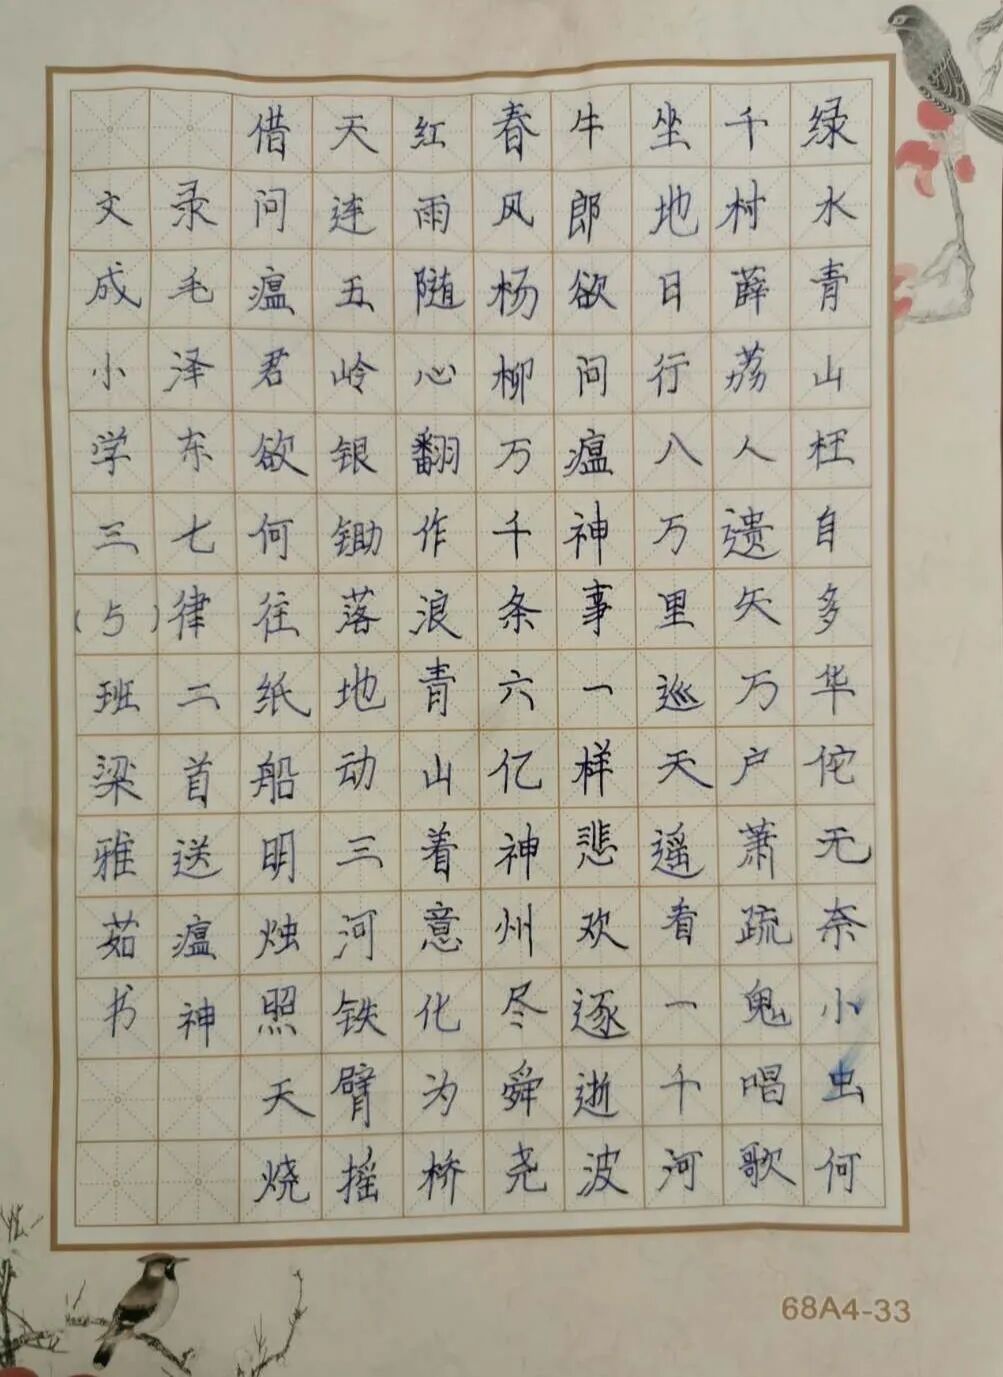 绿水青山枉自多华佗无奈小虫何
千村薜荔人遗矢万户萧疏鬼唱歌
坐地日行八万里巡天遥看一千河
牛郎欲问瘟神事一样悲欢逐逝波
春风杨柳万千条六亿神州尽舜尧
红雨随心翻作浪青山着意化为桥
天连五岭银锄落地动三河铁臂摇
借问瘟君欲何往纸船明烛照天烧
录毛泽东七律二首送瘟神
文成小学三(5)班梁雅茹书
68A4-33